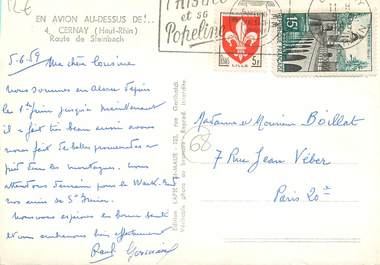 EN AVION AU-DESSUS DE...
4. CERNAY (Haut-Rhin)
Route de Steinbach
5-6-59 Ma chère Cousine
Nous sommes en Alsace depuis
le 1er Juin jusqu'à maintenant
il a fait très beau aussi nous
avons fait de belles promenades à
pied dans les montagnes. Nous
attendons demain pour le Week-End
nos amis de St
Nous vous espérons en bonne santé
et vous embrassons bien affectueusement
Paul Germaine
Edition LAPIE SAINT-MAUR
Véritable photo au bromure - Reprod. interdite
et sa
Popeline
LILLE
5F
15F
Madame et Monsieur Boillat
68
7 Rue Jean Véber
Paris 20e